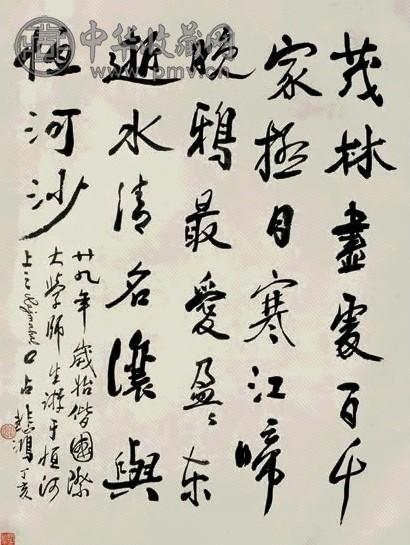 中华收藏网
www.pmv.cn
茂林盡處百千
家極目寒江啼
晚鴉最愛盈々東
逝水清名讓與
恆河沙
廿九年歲始偕國際
大學師生游于恆河
上之 口占 悲鴻 丁亥